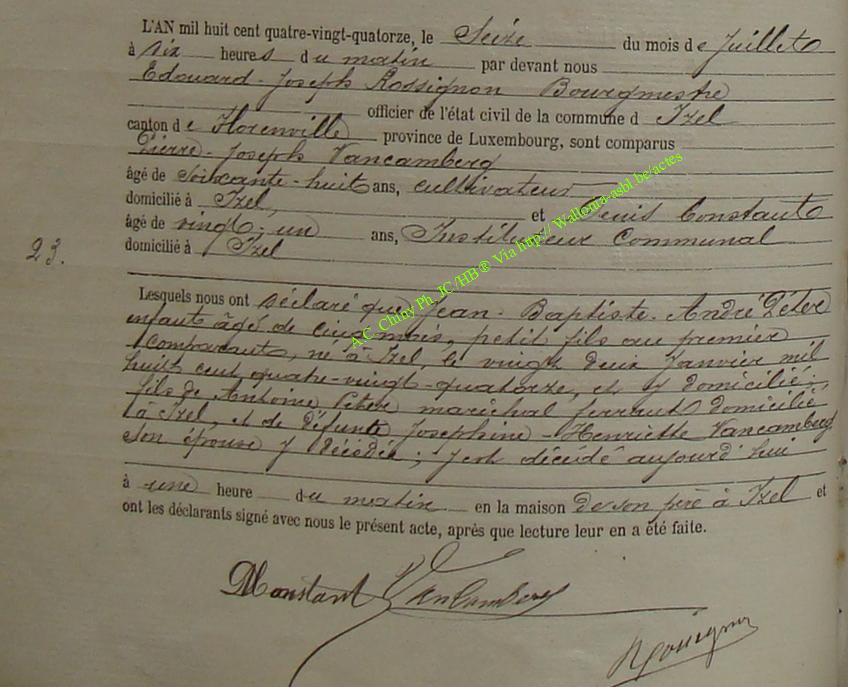 L'AN mil huit cent quatre-vingt-quatorze, le Seize du mois de Juillet
à six heures du matin par devant nous
Edouard-Joseph Rossignon Bourgmestre
officier de l'état civil de la commune d Izel
canton de Florenville province de Luxembourg, sont comparus
Pierre-Joseph Vancamberg
âgé de soixante-huit ans, cultivateur
domicilié à Izel, et Denis Constant
âgé de vingt-un ans, Instituteur Communal
domicilié à Izel
23.
Lesquels nous ont déclaré que Jean-Baptiste-André Péter
enfant âgé de cinq mois, petit fils au premier
comparant, né à Izel, le vingt deux Janvier mil
huit cent quatre-vingt-quatorze, et y domicilié,
fils de Antoine Péter maréchal ferrant domicilié
à Izel, et de défunte Josephine-Henriette Vancamberg
son épouse y décédée; y est décédé aujourd'hui
à une heure du matin en la maison de son père à Izel et
ont les déclarants signé avec nous le présent acte, après que lecture leur en a été faite.
DConstant VanCamberg
Rossignon
A.C. Chiny Ph. JC/HB® Via http:// Wallonia-asbl.be/actes